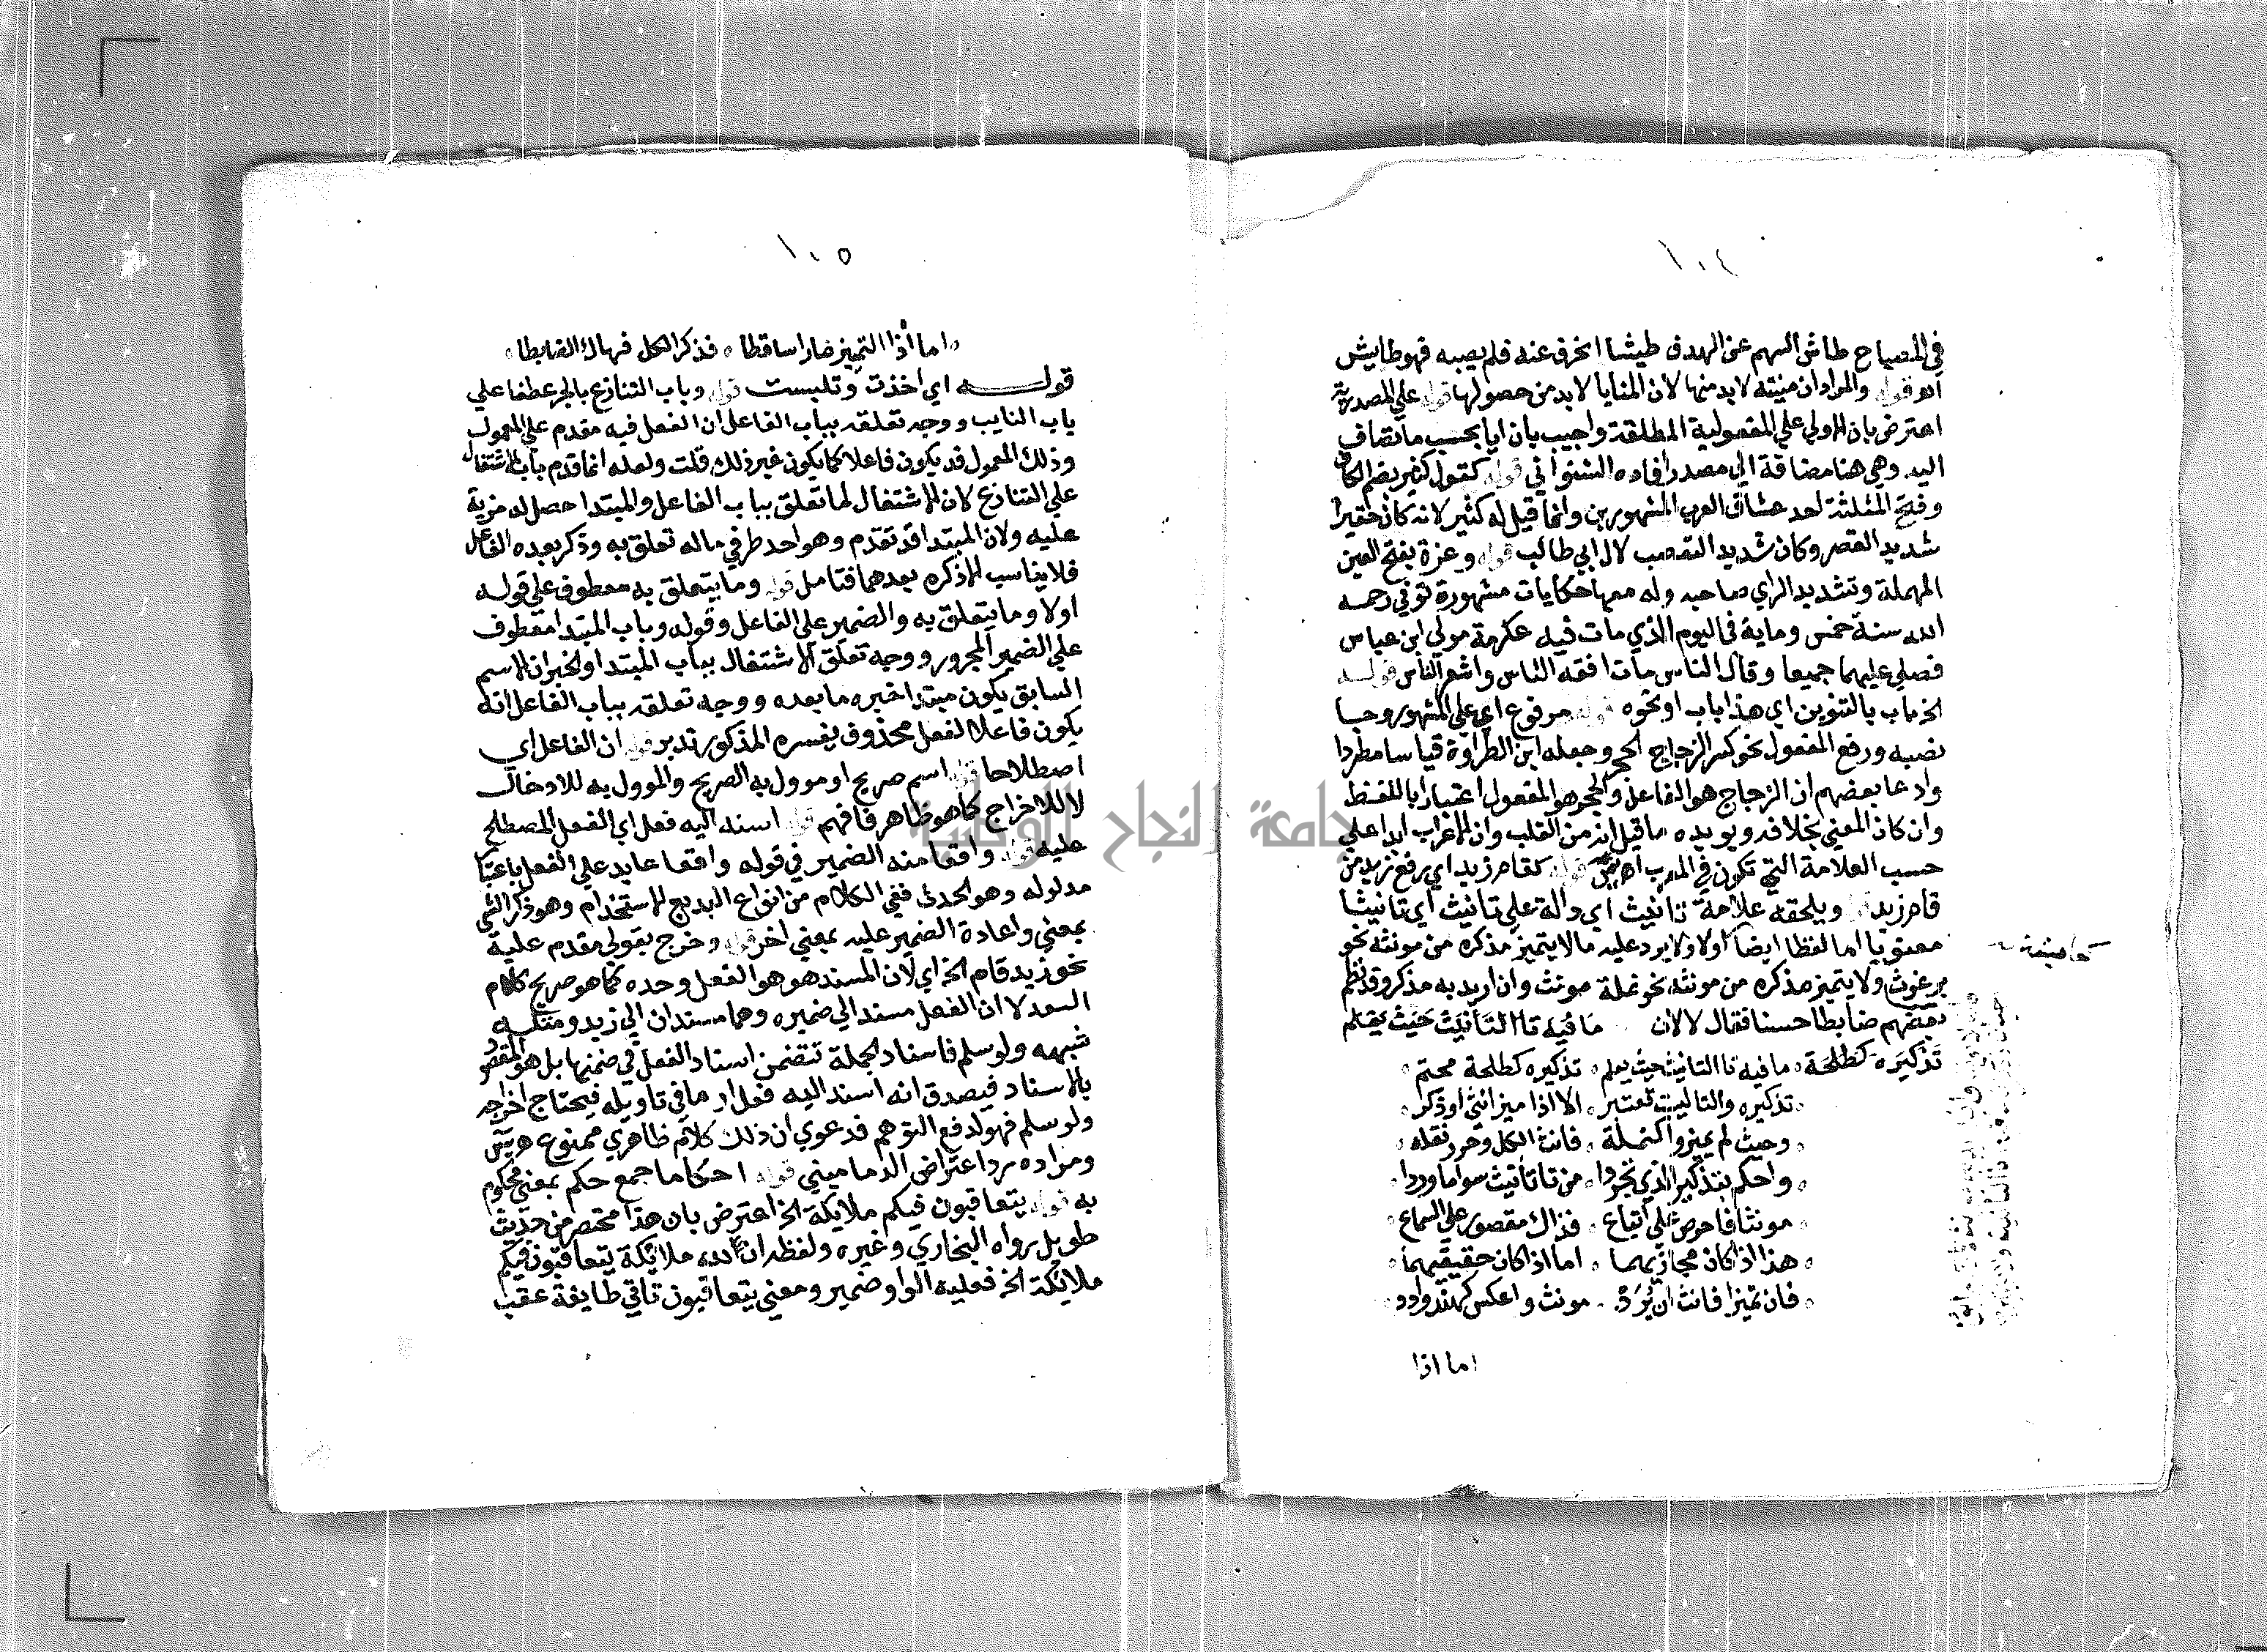 ١٠٤
في المصباح طاش السهم عن الهدف طيشا انحرف عنه فلم يصبه فهو طايش
اه قوله والمراد ان منيته لابد منها لان المنايا لابد من حصولها قوله علي المصدرية
اعترض بان الاولي علي المفعولية المطلقة واجيب بان ايا بحسب ما تضاف
اليه وهي هنا مضافة الي مصدر افاده الشنواني قوله كقول كثير بضم الكاف
وفتح المثلثة احد عشاق العرب المشهورين وانما قيل له كثير لانه كان حقيرا
شديد القصر وكان شديد التعصب لال ابي طالب قوله وعزة بفتح العين
المهملة وتشديد الزاي صاحبه وله معها حكايات مشهورة توفي رحمه
الله سنة خمس وماية في اليوم الذي مات فيه عكرمة مولي ابن عباس
فصلي عليهما جميعا وقال الناس مات افقه الناس واشعر الناس قوله
الخ باب بالتنوين اي هذا باب او نحوه قوله مرفوع اي علي المشهور وجا
نصبه ورفع المفعول نحو كسر الزجاج الحجر وجعله ابن الطراوة قياسا مطردا
وادعا بعضهم ان الزجاج هو الفاعل والحجر هو المفعول اعتبارا باللفظ
وان كان المعني بخلافه ويويده ما قيل انه من القلب وان الاعراب ابدا علي
حسب العلامة التي تكون في المعرب اه قوله كقام زيد اي رفع زيد من
قام زيد قوله ويلحقه علامة تانيث اي دالة علي تانيث اي تانيثا
معنويا اما لفظا ايضا اولا ولا يرد عليه مالا يتميز مذكره من مونثه نحو
برغوث ولا يتميز مذكره من مونثه نحو نملة مونث وان اريد به مذكر وقد نظم
بعضهم ضابطا حسنا فقال لا لان ما فيه تا التانيث حيث يعلم
تذكيره كطلحة ما فيه تا التانيث حيث يعلم تذكيره كطلحة محتم
تذكيره والتا ليست تعتبر الا اذا ميز انثي او ذكر
وحيث لم يميزوا كنملة فانث الكل وحرر نقله
واحكم بتذكير الذي تجردا من تا تأنيث سوا ما وردا
مونثا فاحرص علي اتباع فذاك مقصور علي السماع
هذا اذا كان مجازيهما اما اذا كان حقيقيهما
فان تميزا فانث ان يرد مونث واعكس كهند وادد
اما اذا
١٠٥
اما أذا التميز صار ساقطا فذكر الكل فهاك الضابطا
قوله اي اخذت وتلبست قوله وباب التنازع بالجر عطفا علي
باب النايب ووجه تعلقه بباب الفاعل ان الفعل فيه مقدم علي المعمول
وذلك المعمول قد يكون فاعلا كما يكون غير ذلك قلت ولعله انما قدم باب الاشتغال
علي التنازع لان الاشتغال لما تعلق بباب الفاعل والمبتدا حصل له مزية
عليه ولان المبتدا قد تقدم وهو احد طرفي ماله تعلق به وذكر بعده الفاعل
فلا يناسب الا ذكره بعدهما فتامل قوله وما يتعلق به معطوف علي قوله
اولا وما يتعلق به والضمير علي الفاعل وقوله وباب المبتدا معطوف
علي الضمير المجرور ووجه تعلق الاشتغال بباب المبتدا والخبر ان الاسم
السابق يكون مبتدا خبره ما بعده ووجه تعلقه بباب الفاعل انه
يكون فاعلا لفعل محذوف يفسره المذكور تدبر قوله ان الفاعل اي
اصطلاحا قوله اسم صريح او موول به الصريح والموول به للادخال
لا للاخراج كما هو ظاهر فافهم قوله اسند اليه فعل اي الفعل المصطلح
عليه قوله واقعا منه الضمير في قوله واقعا عايد علي الفعل باعتبا
مدلوله وهو الحدث ففي الكلام من انواع البديع الاستخدام وهو ذكر الشي
بمعني واعادة الضمير عليه بمعني اخر قوله وخرج بقولي مقدم عليه
نحو زيد قام الخ اي لان المسند هو هو الفعل وحده كما هو صريح كلام
السعد لا ان الفعل مسند الي ضميره وهما مسندان الي زيد ومثله
شبهه ولو سلم فاسناد الجملة تتضمن اسناد الفعل في ضمنها بل هو المقصود
بالاسناد فيصدق انه اسند اليه فعل او ما في تاويله فيحتاج اخراجه
ولو سلم فهو لدفع التوهم فدعوي ان ذلك كلام ظاهري ممنوع
ومراده رد اعتراض الدماميني قوله احكاما جمع حكم بمعني محكوم
به قوله يتعاقبون فيكم ملايكة الخ اعترض بان هذا مختصر من حديث
طويل رواه البخاري وغيره ولفظه ان لله ملائكة يتعاقبون فيكم
ملائكة الخ فعليه الواو ضمير ومعني يتعاقبون تاتي طايفة عقب
جامعة النجاح الوطنية